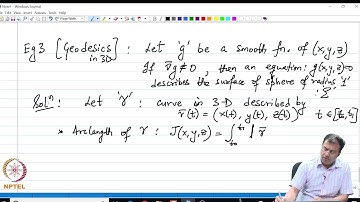 Eg 3 [Geodesics in 3D] : Let 'g' be a smooth fn. of (x,y,z)
If ∇̄g ≠ 0, then an equation: g(x,y,z)=0
describes the surface of sphere of radius '1'
'Σ'
Solⁿ: Let 'γ' : curve in 3-D described by
r̄(t) = (x(t), y(t), z(t)) t ∈ [t₀,t₁]
* Arclength of γ : J(x,y,z) = ∫ₜ₀ᵗ¹ | r̄
NPTEL